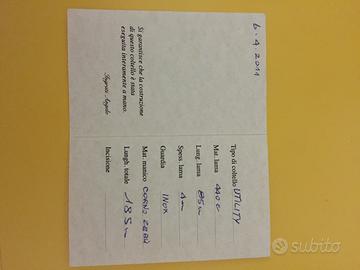 6-4.2011
Si garantisce che la costruzione
di questo coltello è stata
eseguita interamente a mano.
Ingrois Angelo
Tipo di coltello UTILITY
Mat. lama 440 C
Lung. lama 85 m
Spess. lama 4 m
Guardia INOX
Mat. manico CORNO ZEBÙ
Lungh. totale 185 m
Incisione
subito